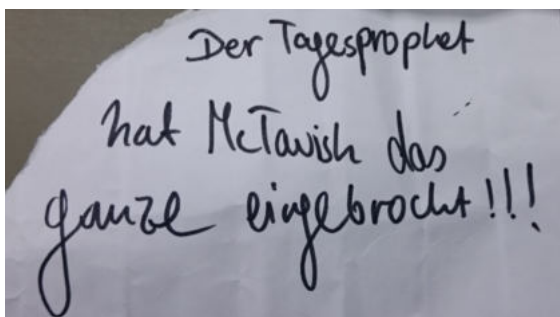 Der Tagesprophet
hat McTavish das
ganze eingebrockt!!!